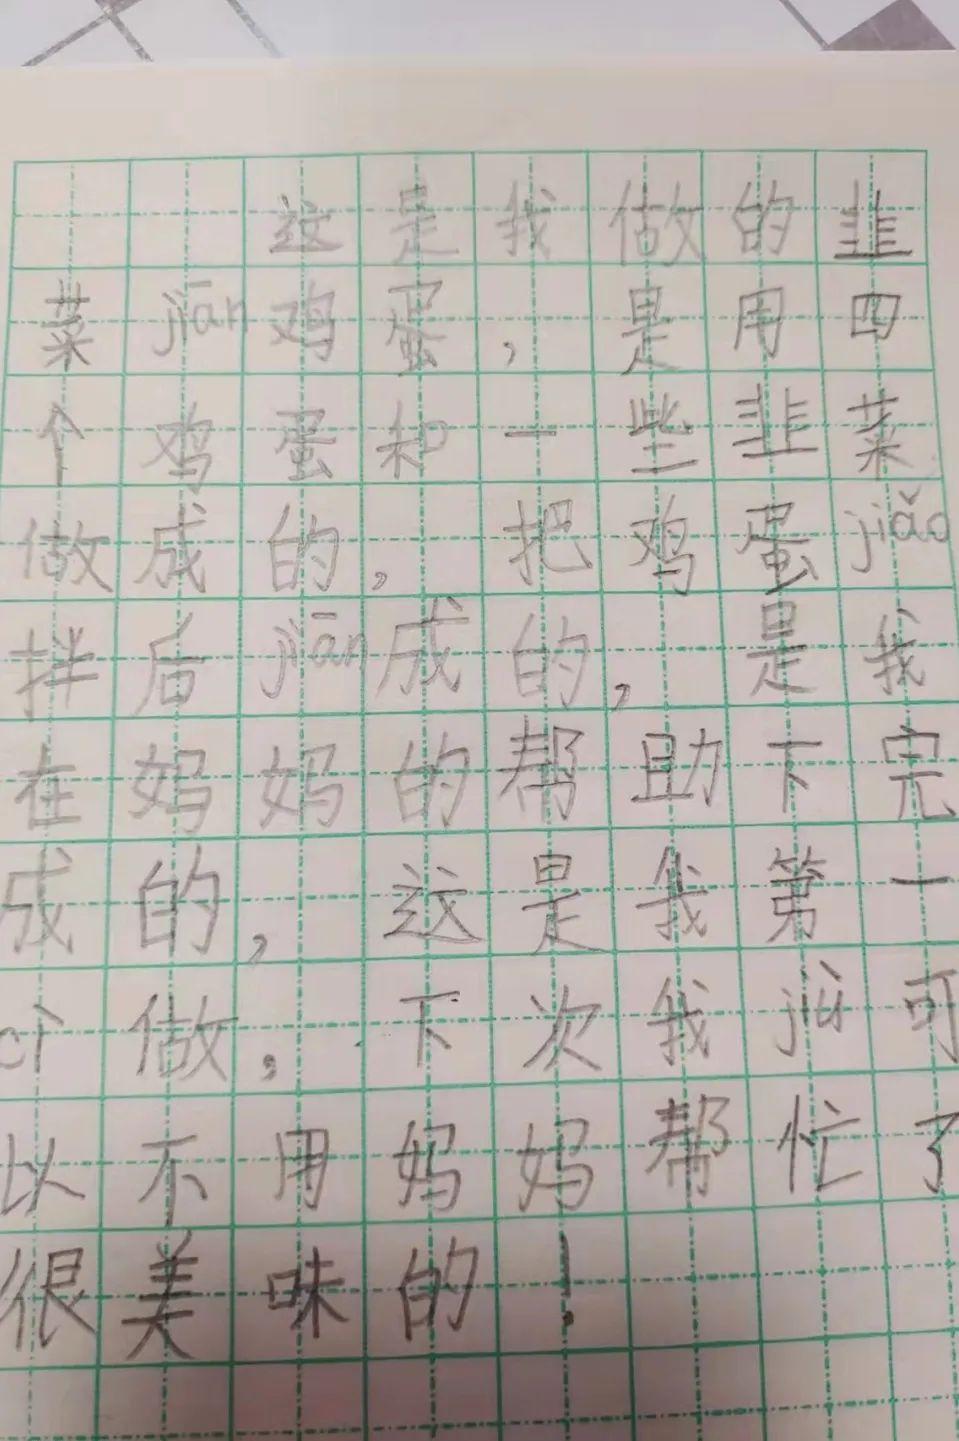 这是我做的韭
菜jiān鸡蛋，是用四
个鸡蛋和一些韭菜
做成的，把鸡蛋jiǎo
拌后jiān成的，是我
在妈妈的帮助下完
成的，这是我第一
cì做，下次我jiù可
以不用妈妈帮忙了
很美味的！